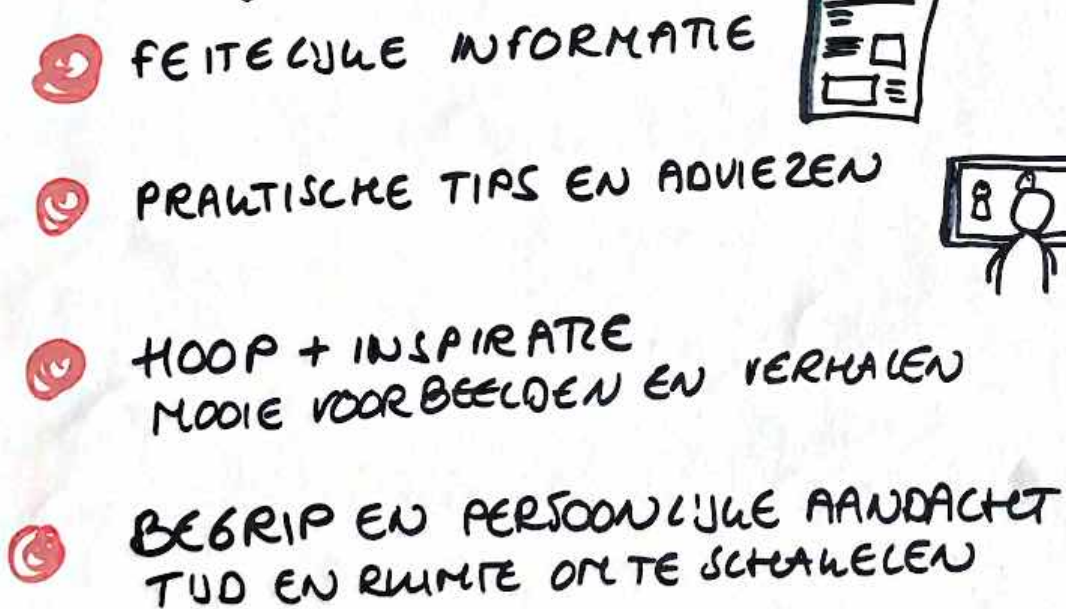 FEITELIJKE INFORMATIE
PRAKTISCHE TIPS EN ADVIEZEN
HOOP + INSPIRATIE
MOOIE VOORBEELDEN EN VERHALEN
BEGRIP EN PERSOONLIJKE AANDACHT
TIJD EN RUIMTE OM TE SCHAKELEN